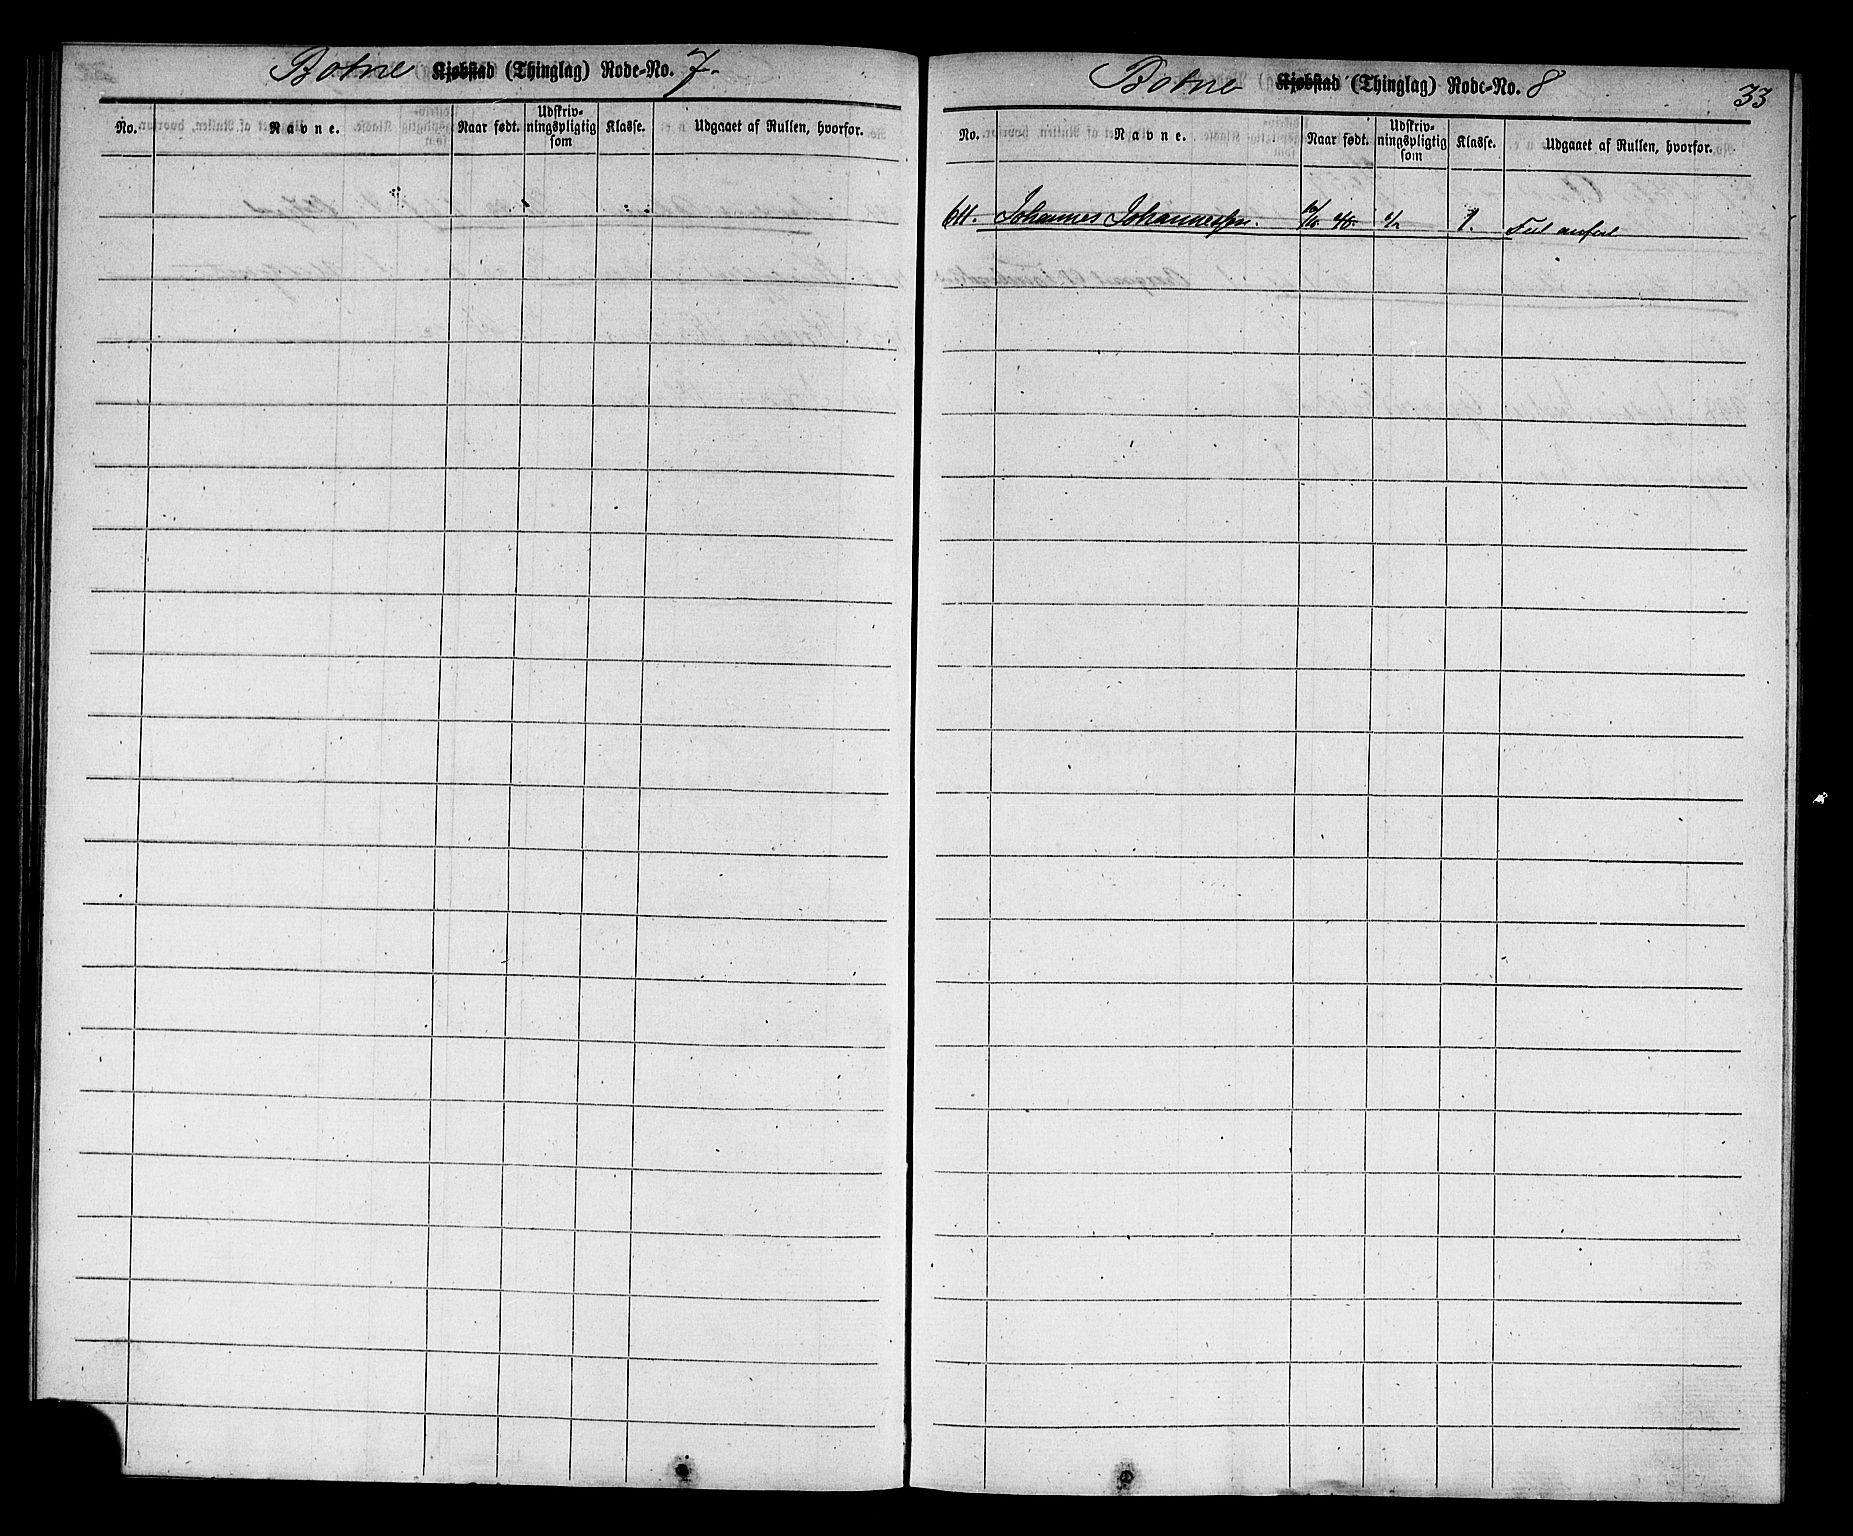 Botne Kjøbstad (Thinglag) Rode-No. 7.
No. Navne. Naar født. Udskrivningspligtig som Klasse. Udgaaet af Rullen, hvorfor.
Botne Kjøbstad (Thinglag) Rode-No. 8
33
No. Navne. Naar født. Udskrivningspligtig som Klasse. Udgaaet af Rullen, hvorfor.
Johannes Johannessen. 1. Feil anført